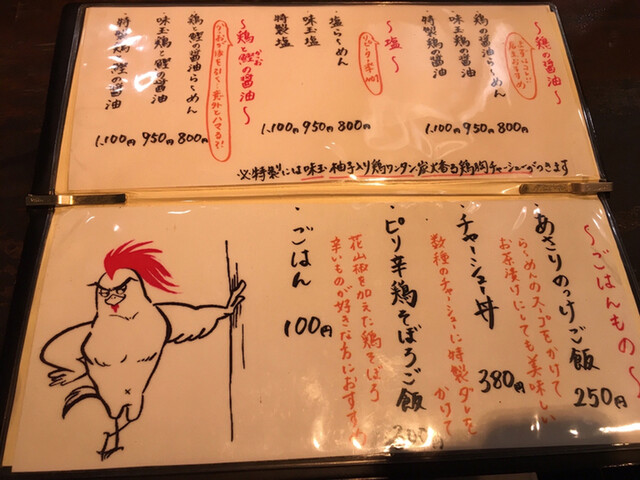 〜鶏の醤油〜
まずはコレ!!
店主おすすめ
・鶏の醤油らーめん 800円
・味玉鶏の醤油 950円
・特製鶏の醤油 1,100円
〜塩〜
・塩らーめん 800円
・味玉塩 950円
・特製塩 1,100円
〜鶏と鰹の醤油〜
・鶏と鰹の醤油らーめん 800円
・味玉鶏と鰹の醤油 950円
・特製鶏と鰹の醤油 1,100円
※特製には味玉・柚子入り鶏ワンタン・炭火香る鶏胸チャーシューがつきます
〜ごはんもの〜
・あさりのっけご飯 250円
らーめんのスープをかけて
お茶漬けにしても美味しい
・チャーシュー丼 380円
数種のチャーシューに特製ダレをかけて
・ピリ辛鶏そぼろご飯
花山椒を加えた鶏そぼろ
辛いものが好きな方におすすめ
・ごはん 100円